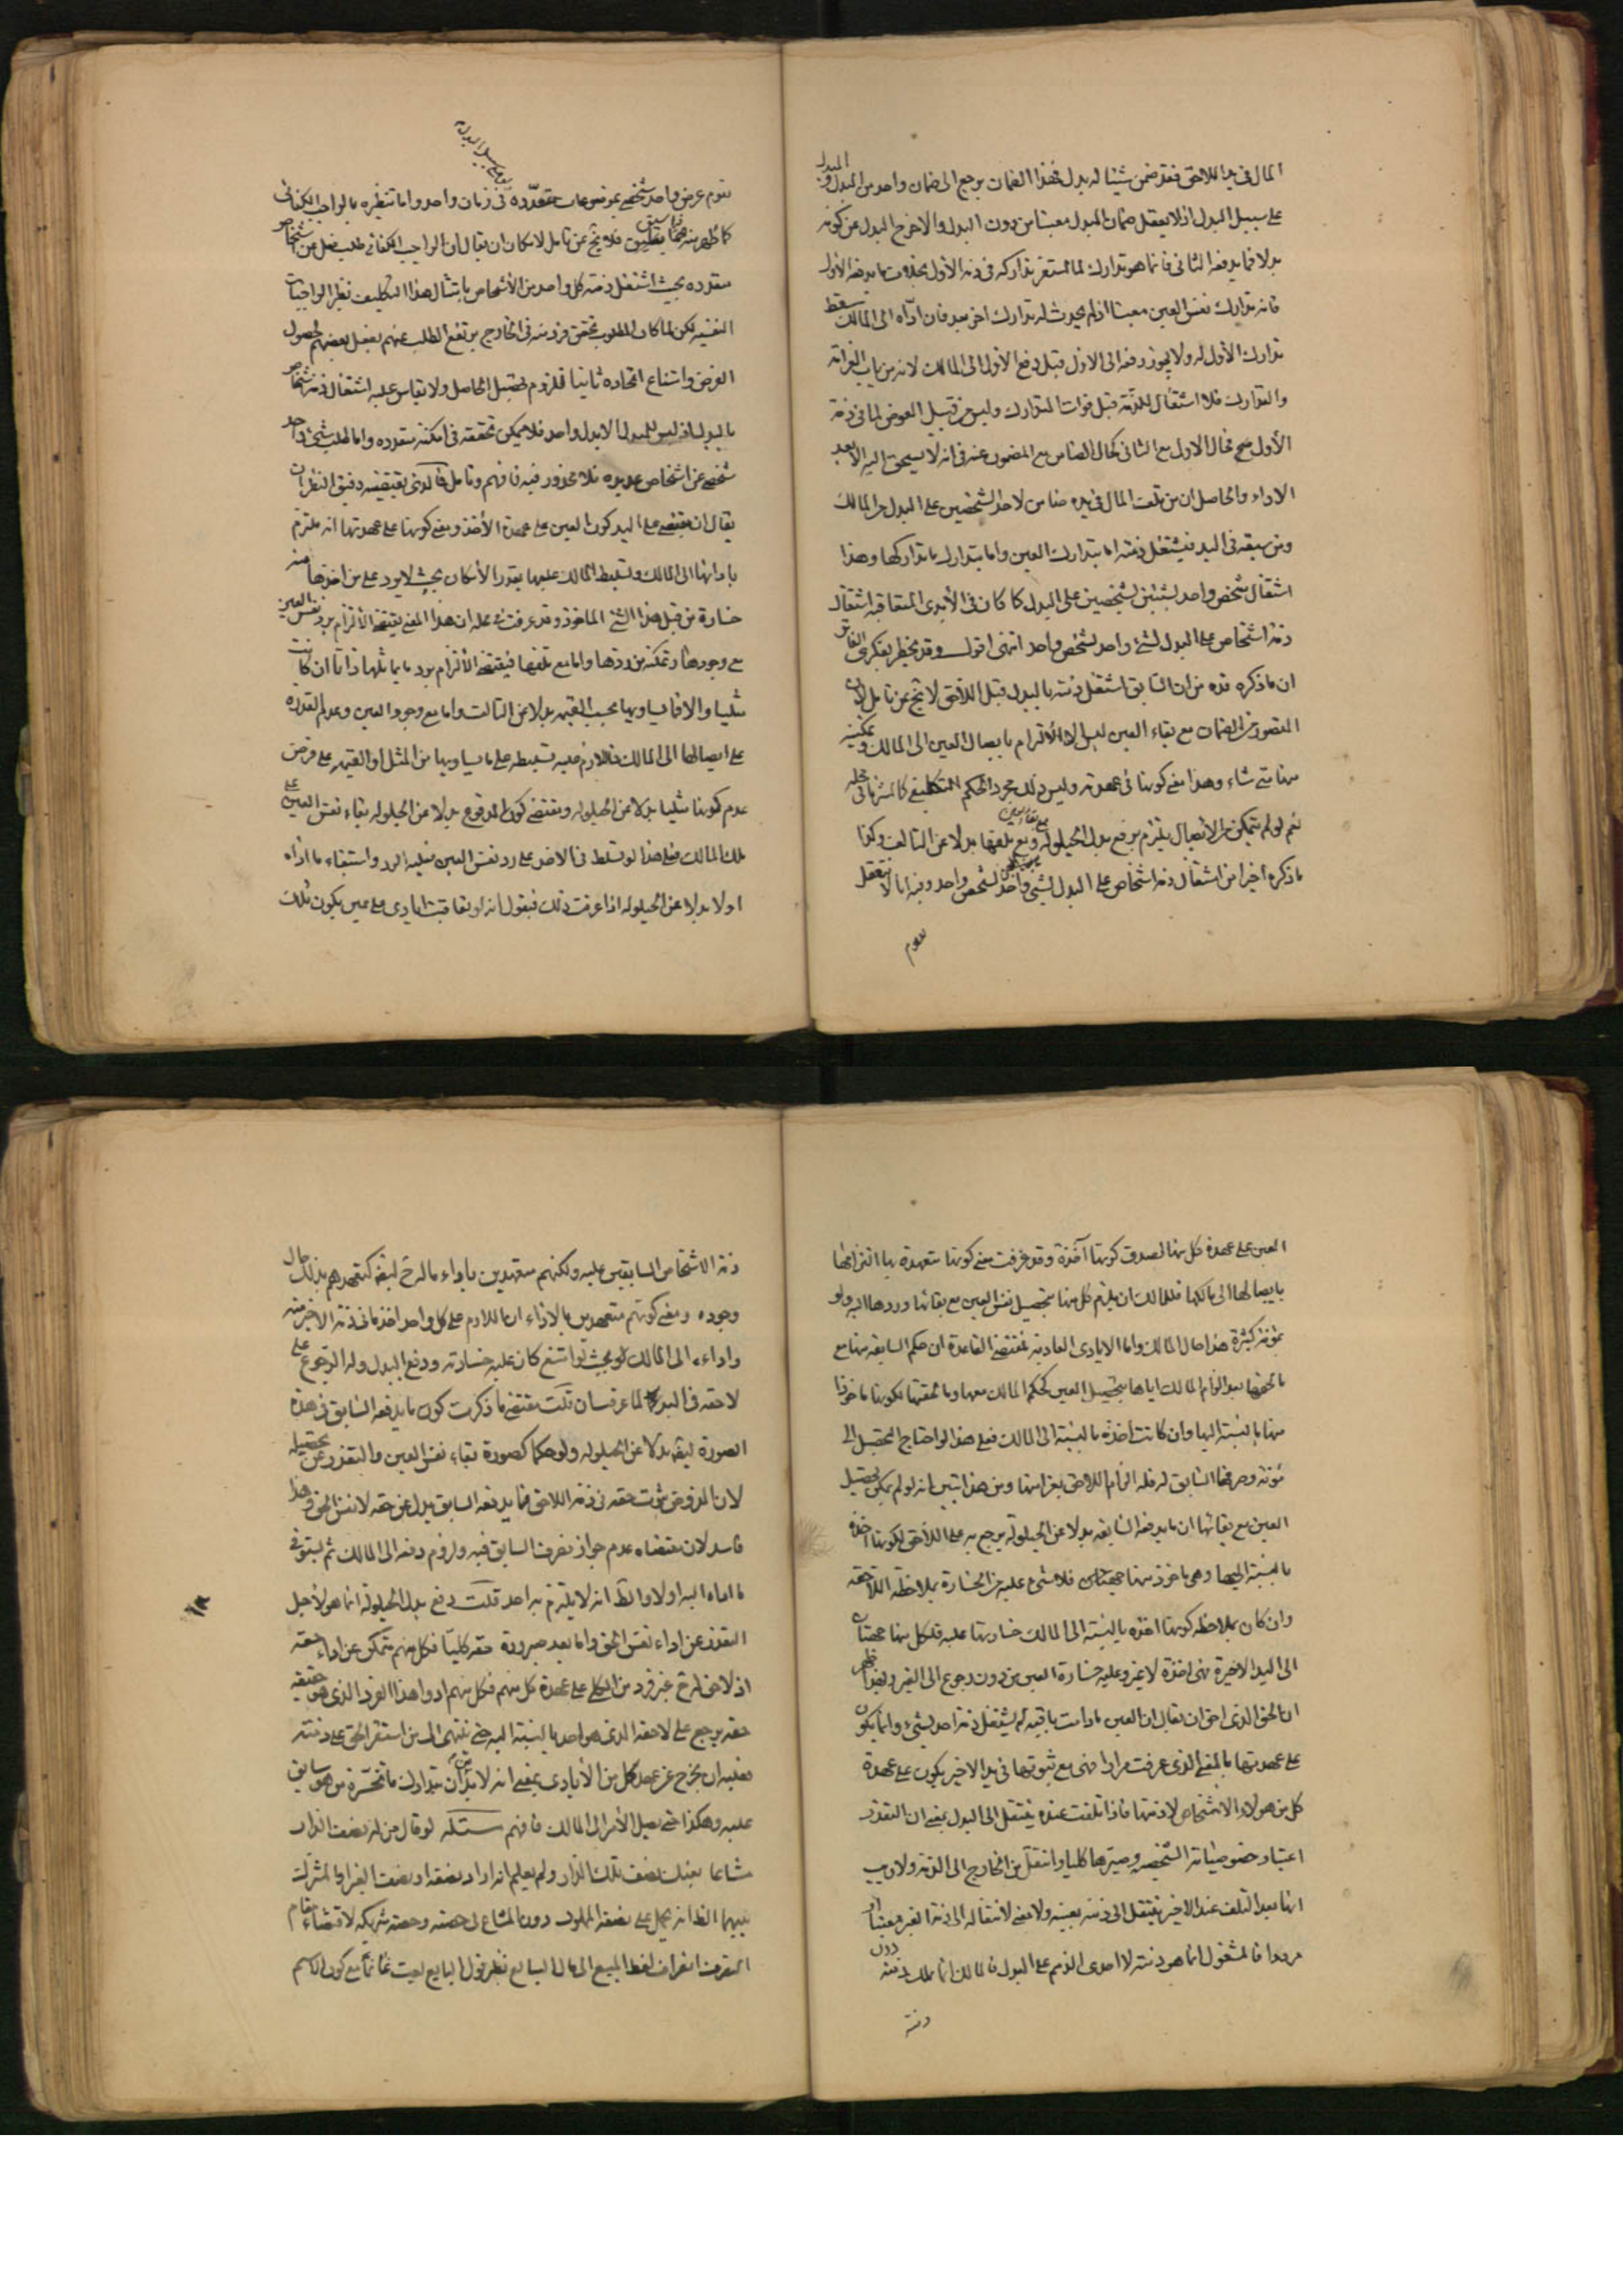 المال فى يد اللاحق فقد ضمن شيئا له بدل فهذا الضمان يرجع الى ضمان واحد من المبدل والبدل
على سبيل البدل اذ لا يعقل ضمان المبدل معينا من دون البدل والا خرج البدل عن كونه
بدلا فما يدفعه الثانى فانما هو تدارك لما استقر تداركه فى ذمة الأول بخلاف ما يدفعه الأول
فانه تدارك نفس العين معينا اذ لم يحدث له تدارك اخر بعد فان ادّاه الى المالك سقط
تدارك الأول له ولا يجوز دفعه الى الاول قبل دفع الاول الى المالك لانه من باب الغرامة
والتدارك فلا اشتغال للذمّة قبل فوات التدارك وليس من قبيل العوض لما فى ذمة
الأول فحال الاول مع الثانى كحال الضامن مع المضمون عنه فى انه لا يستحق اليه الا بعد
الاداء والحاصل ان من تلف المال فى يده ضامن لاحد الشخصين على البدل من المالك
ومن سبقه فى اليد فيشتغل ذمته اما بتدارك العين واما بتدارك ما تداركها وهذا
اشتغال شخص واحد بشيئين لشخصين على البدل كما كان فى الأيدى المتعاقبة اشتغال
ذمة اشخاص على البدل لشئ واحد لشخص واحد انتهى اقول وقد يخطر بفكرى الفاتر
ان ما ذكره قده من ان السابق اشتغل ذمته بالبدل قبل اللاحق لا تخ عن تامل لان
المتصور من الضمان مع بقاء العين ليس الا الالتزام بايصال العين الى المالك وتمكينه
منها متى شاء وهذا معنى كونها فى عهدته وليس ذلك مجرد الحكم التكليفى كما اشرنا فى محله
نعم لو لم يتمكن من الايصال يلتزم بدفع بدل الحيلولة مع بقاء العين ومع تلفها بدلا عن التالف وكذا
ما ذكره اخيرا من اشتغال ذمة اشخاص على البدل لشئ واحد لشخص واحد وفيه انا لا نتعقل
تقوم عرض واحد شخصى بموضوعات متعدّدة فى زمان واحد واما تنظيره بالواجب الكفائى
كما ظهر منه فيما سبق فلا تخ عن تامل لامكان ان يقال ان الواجب الكفائى طلب فعل من اشخاص
متعدده بحيث اشتغل ذمته كل واحد من الأشخاص بامتثال هذا التكليف نظير الواجبات
النفسيه لكن لما كان المطلوب تحقق فرد منه فى الخارج يرتفع الطلب عنهم بفعل بعضهم لحصول
الغرض وامتناع اتحاده ثانيا للزوم تحصيل الحاصل ولا يقاس عليه اشتغال ذمة اشخاص
بالبدل اذ ليس للمبدل الا بدل واحد فلا يمكن تحققه فى امكنة متعدده واما طلب شئ واحد
شخصى عن اشخاص عديده فلا محذور فيه فافهم وتامل فالذى يقتضيه دقيق النظر ان
يقال ان مقتضى على اليد كون العين على عهدة الأخذ ومعنى كونها على عهدتها انه ملتزم
بادائها الى المالك وتسليط المالك عليها بقدر الأمكان بحيث لا يرد على من اخذها منه
خسارة من قبل هذا الشئ الماخوذ وقد عرفت فى محله ان هذا المعنى يقتضى الألتزام برد نفس العين
مع وجودها وتمكنه من ردها واما مع تلفها فيقتضى الألتزام برد ما يماثلها ذاتا ان كانت
مثليا والا فما يساويها بحسب القيمه بدلا عن التالف واما مع وجود العين وعدم القدره
على ايصالها الى المالك فاللازم عليه تسليطه على ما يساويها من المثل او القيمه على فرض
عدم كونها مثليا بدلا عن الحيلوله ومقتضى كون المدفوع بدلا عن الحيلوله بقاء نفس العين على
ملك المالك فعلى هذا لو تسلط فى الاخر على رد نفس العين فعليه الرد واستيفاء ما اداه
اولا بدلا عن الحيلوله اذا عرفت ذلك فنقول انه لو تعاقبت ايادى على عين يكون تلك
العين على عهدة كل منها لصدق كونها آخذة وقد عرفت معنى كونها متعهدة بها التزامها
بايصالها الى مالكها فللمالك ان يلزم كل منها بتحصيل نفس العين مع بقائها وردها اليه ولو
بمؤنة كثيرة هذا حال المالك واما الايادى العادية فمقتضى القاعدة ان حكم السابقه منها مع
ما لحقها بعد الزام المالك اياها بتحصيل العين كحكم المالك معها وما لحقتها لكونها ماخوذا
منها بالنسبة اليها وان كانت اخذه بالنسبة الى المالك فعلى هذا لو احتاج التحصيل الى
مؤنة وصرفها السابق له فله الزام اللاحق بغرامتها ومن هذا تبين انه لو لم يمكن تحصيل
العين مع بقائها ان ما يدفعه السابقه بدلا عن الحيلولة يرجع به على اللاحق لكونها اخذه
بالنسبة اليها وهى ماخوذ منها فلا شئ عليه من الخسارة بملاحظه اللاحقه
وان كان بملاحظه كونها اخذه بالنسبة الى المالك خسارتها عليه فلكل منها جهتان
الى اليد الاخيرة فهى اخذة لا غير وعليه خسارة العين من دون رجوع الى الغير وبهذا ظهر
ان الحق الذى احق ان يقال ان العين ما دامت باقية لم يشتغل ذمة احد بشئ وانما يكون
على عهدتها بالمعنى الذى عرفت مرارا فهى مع ثبوتها فى يد الاخير يكون على عهدة
كل من هؤلاء الاشخاص لا ذمتها فاذا تلفت عنده ينتقل الى البدل بمعنى ان التعذر
اعتبار خصوصياته الشخصيه وصيرها كليا وانتقل من الخارج الى الذمة ولا ريب
انها بعد التلف عند الاخير ينتقل الى ذمته بعينه ولا معنى لانتقاله الى ذمة الغير معينا او
مرددا فالمشغول انما هو ذمته لا احدى الذمم على البدل فالمالك انما يملك ذمته دون
ذمة الاشخاص السابقين عليه ولكنهم متعهدين باداء ما لزم كتعهدهم بذلك حال
وجوده ومعنى كونهم متعهدين بالاداء ان اللازم على كل واحد اخذ ما فى ذمة الاخير منه
واداءه الى المالك لو بحيث لو امتنع كان عليه خسارته ودفع البدل وله الرجوع على
لاحقه فى اليد لما عرفت ان قلت مقتضى ما ذكرت كون ما يدفعه السابق فى هذه
الصورة بدلا عن الحيلوله ولو حكما كصورة بقاء نفس العين والتعذر عن تحصيله
لان المفروض ثبوت حقه فى ذمة اللاحق فما يدفعه السابق بدل عن حقه لا نفس الحق وهذا
فاسد لان مقتضاه عدم جواز تصرف السابق فيه ولزوم دفعه الى المالك ثم يستوفى
ما اداه اليه اولا والظ انه لا يلتزم به احد قلت دفع بدل الحيلولة انما هو لاجل
التعذر عن اداء نفس الحق واما بعد صيرورة حقه كليّا فكل منهم متمكن عن اداء حقه
حقه يرجع على لاحقه الذى هو اخذ بالنسبة اليه حتى ينتهى الى من استقر الحق على ذمته
فعليه ان يخرج عن عهدة كل من الأيادى بمعنى انه لا بد من ان يتدارك ما خسره من هو سابق
عليه وهكذا حتى يصل الأمر الى المالك فافهم مسئله لو قال من له نصف الدار
مشاعا بعتك نصف تلك الدار ولم يعلم انه اراد نصفه او نصف الغير او المشترك
بينهما الظ انه يحمل على نصفه المملوك دون المشاع فى حصته وحصة شريكه لاقتضاء مقام
التصرف انصراف لفظ المبيع الى مال البايع نظير قول البايع بعت غانما مع كون الاسم